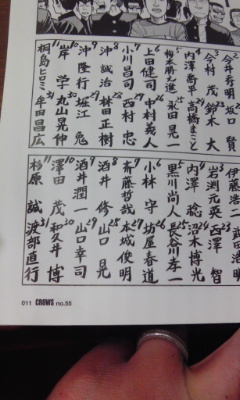 坂口 賢
今村 茂 鈴木 大
高橋まこと
永田晃一
上田健司 中村義人
小川昌司 西村 忠
沖 誠治 林田正樹
沖 隆行 堀江
岸 学 丸山晃伸
桐島ヒロミ 牟田昌広
伊藤浩二
岩淵元英 西澤 智
内澤 稔 沼木博光
黒川尚人 長谷川孝一
小林 守 坊屋春道
斉藤哲哉 本城俊明
酒井 修 山口 晃
酒井潤一 山口幸司
澤田 茂 和久井 博
杉原 誠 渡部直行
011 CROWS no.55